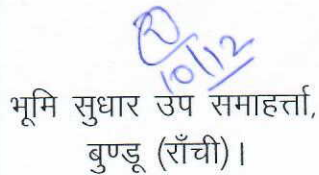 10/12
भूमि सुधार उप समाहर्त्ता,
बुण्डू (राँची)।